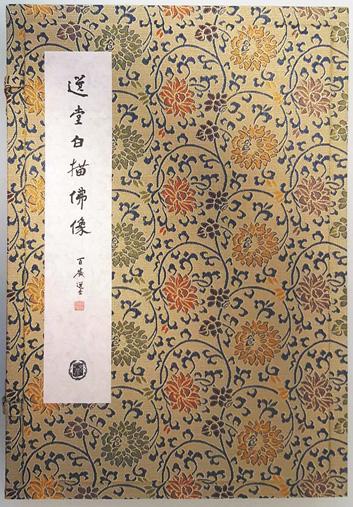 選堂白描佛像
百歲選堂